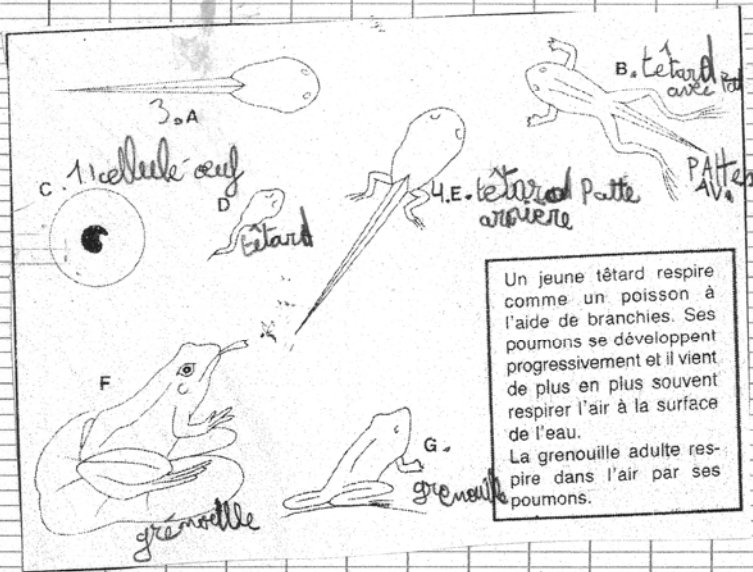 3.A
B. têtard
avec Pat
C. 1. cellule-œuf
D
têtard
4.E. têtard Patte
arriere
PATTes
AV.
Un jeune têtard respire
comme un poisson à
l'aide de branchies. Ses
poumons se développent
progressivement et il vient
de plus en plus souvent
respirer l'air à la surface
de l'eau.
La grenouille adulte res-
pire dans l'air par ses
poumons.
F
grenouille
G.
grenouill